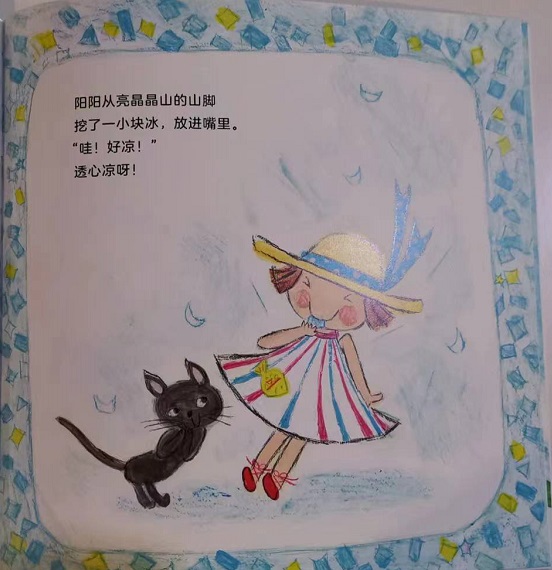 阳阳从亮晶晶山的山脚
挖了一小块冰，放进嘴里。
“哇！好凉！”
透心凉呀！